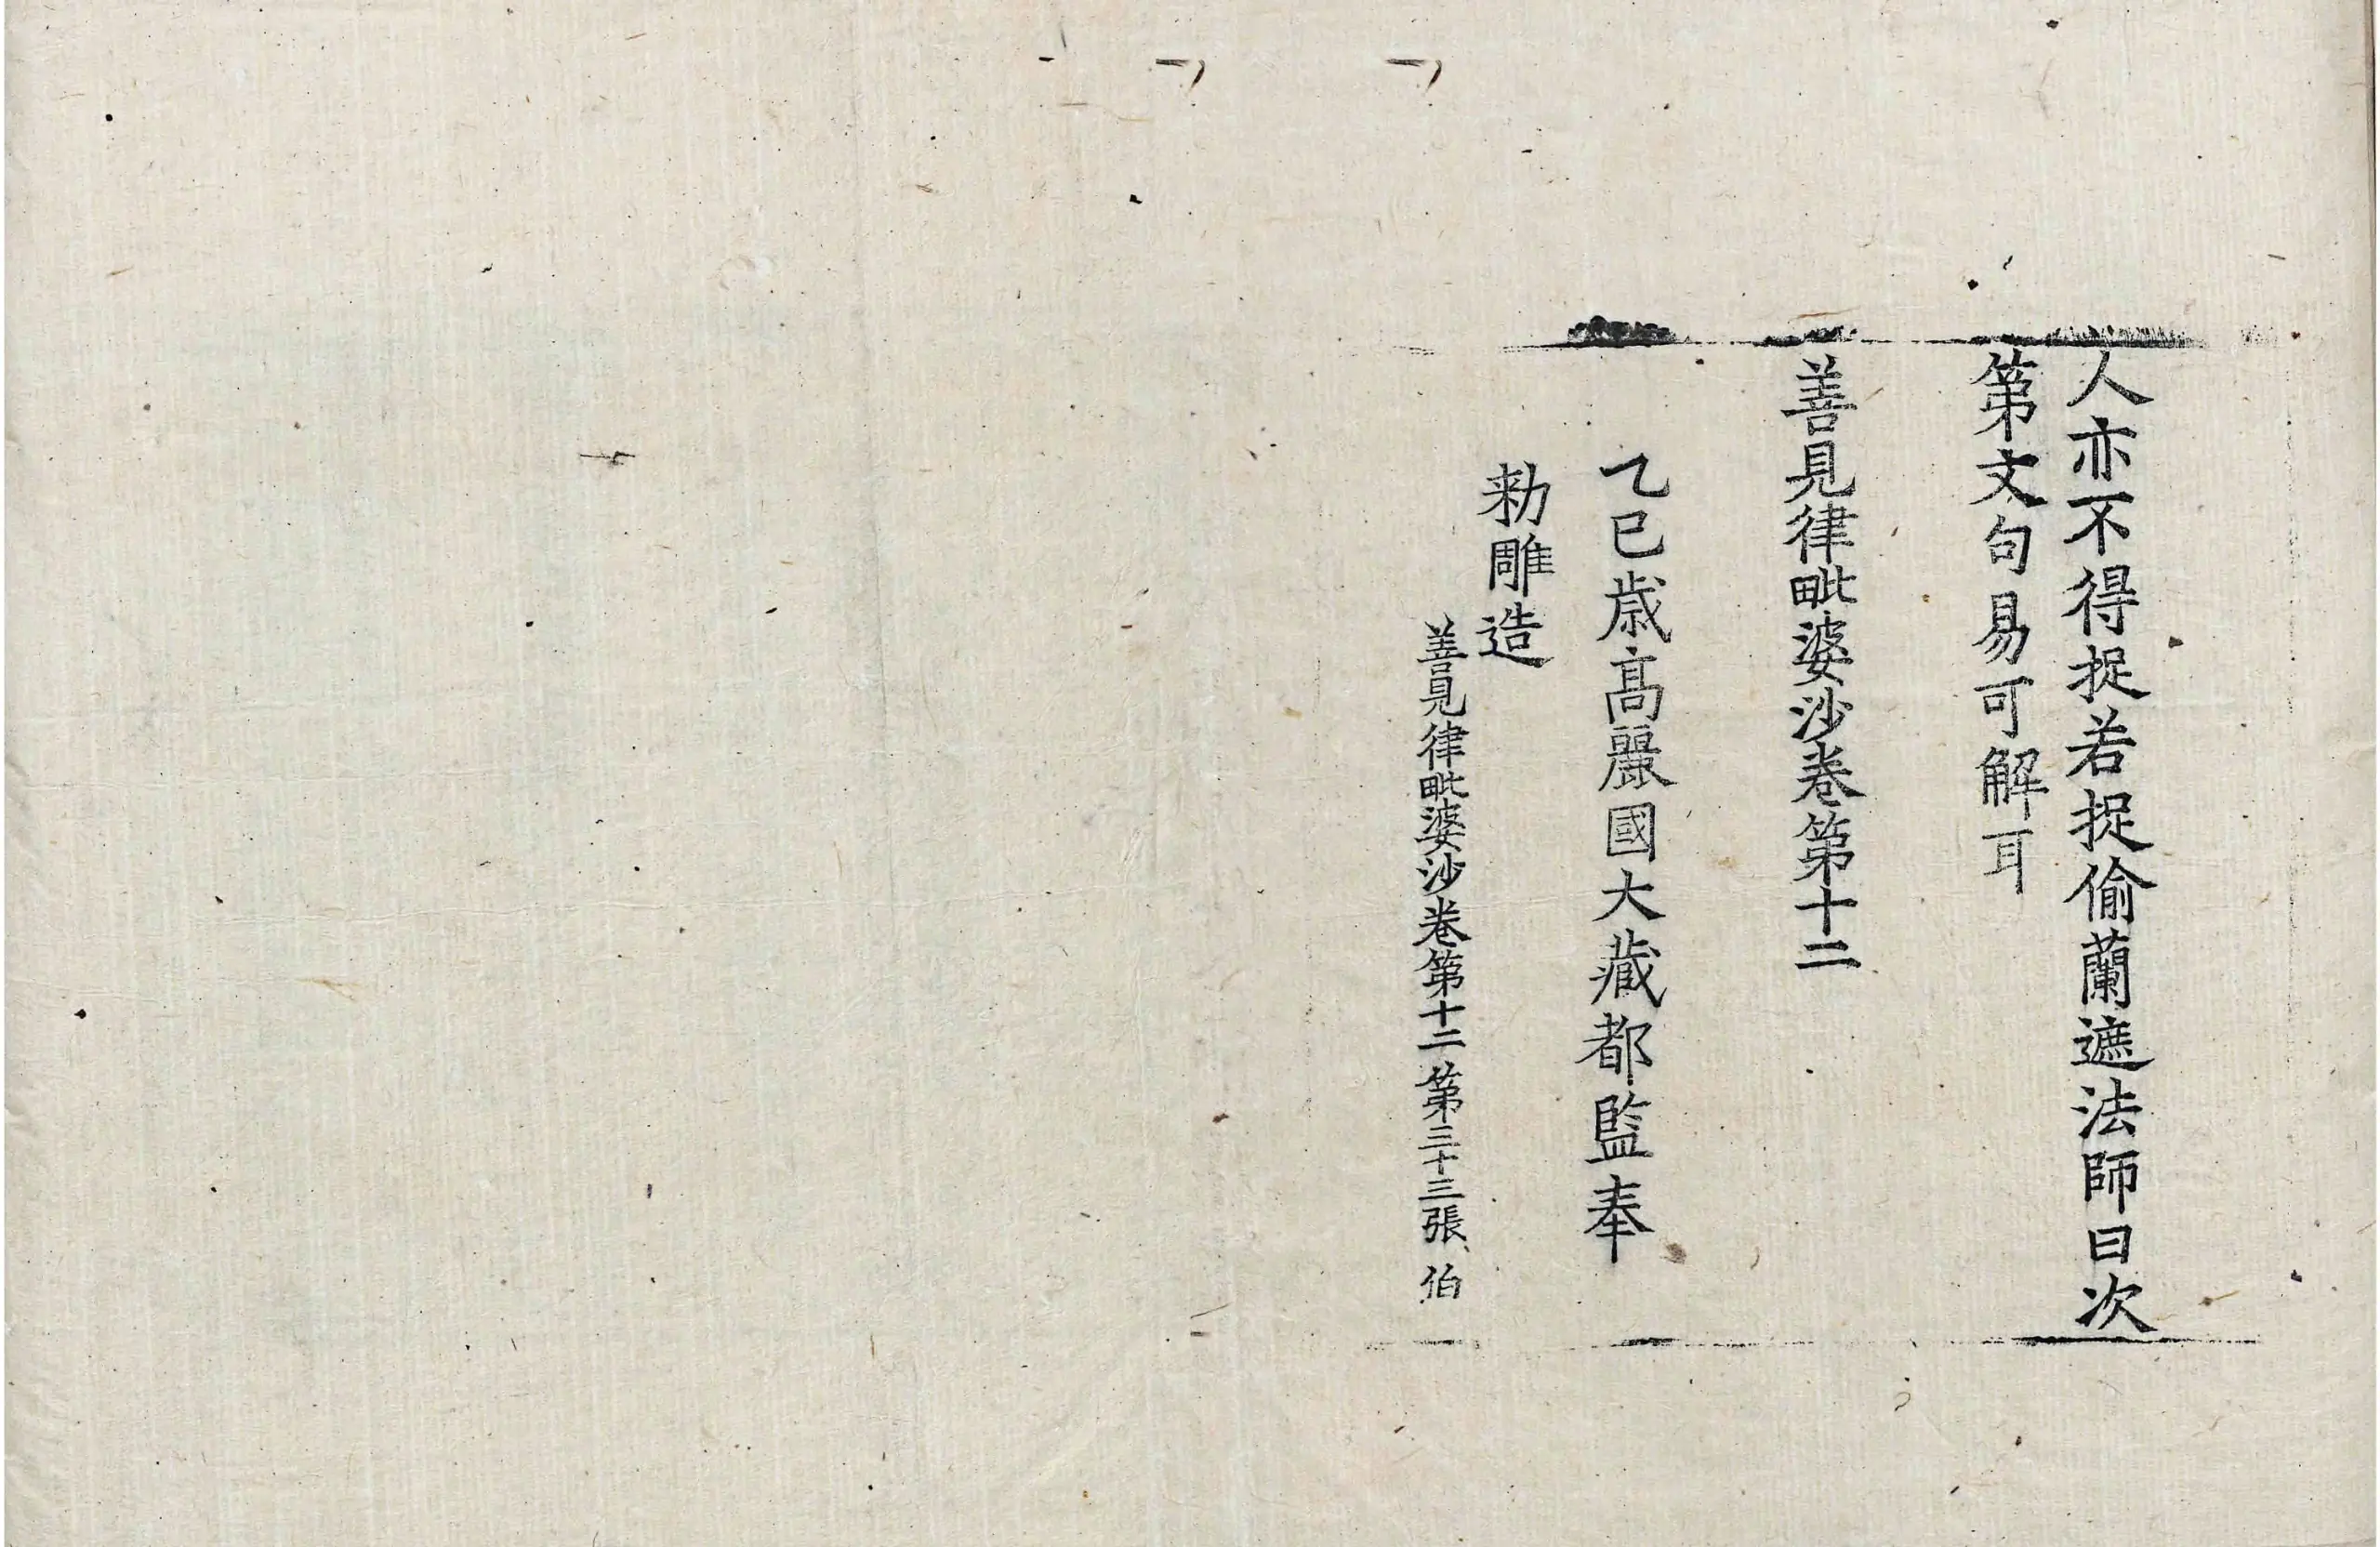 人亦不得捉若捉偷蘭遮法師曰次
第文句易可解耳
善見律毗婆沙卷第十二
乙巳歲高麗國大藏都監奉
勅雕造
善見律毗婆沙卷第十二 第三十三張 伯